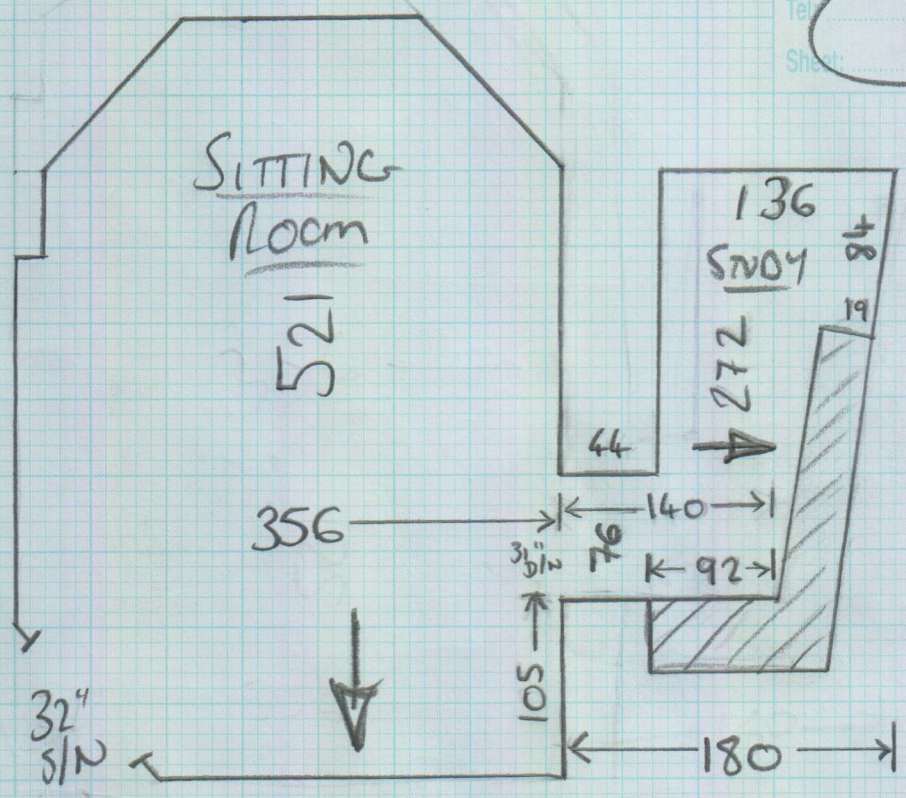 Tel:
Sheet:
SITTING
ROOM
521
136
STUDY
84
19
272
44
356
140
76
31" D/N
92
105
32"
S/N
180